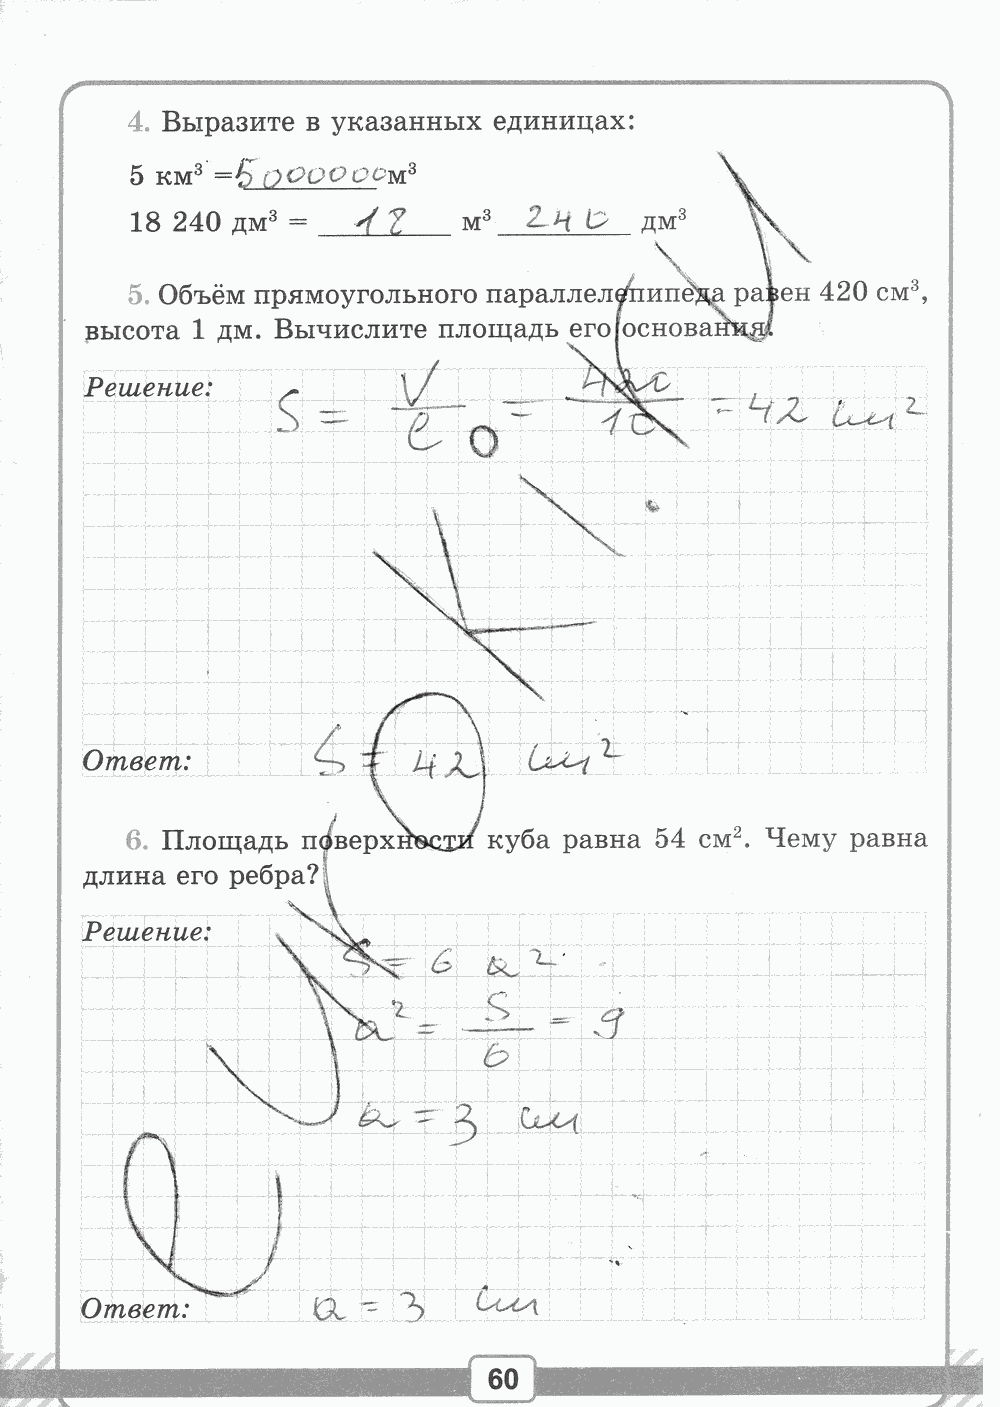 4. Выразите в указанных единицах:
5 км³ = 5000000 м³
18 240 дм³ = 18 м³ 240 дм³
5. Объём прямоугольного параллелепипеда равен 420 см³,
высота 1 дм. Вычислите площадь его основания.
Решение:
S = V/c = 420/10 = 42 см²
Ответ: S = 42 см²
6. Площадь поверхности куба равна 54 см². Чему равна
длина его ребра?
Решение:
S = 6 a²
a² = S/6 = 9
a = 3 см
Ответ: a = 3 см
60